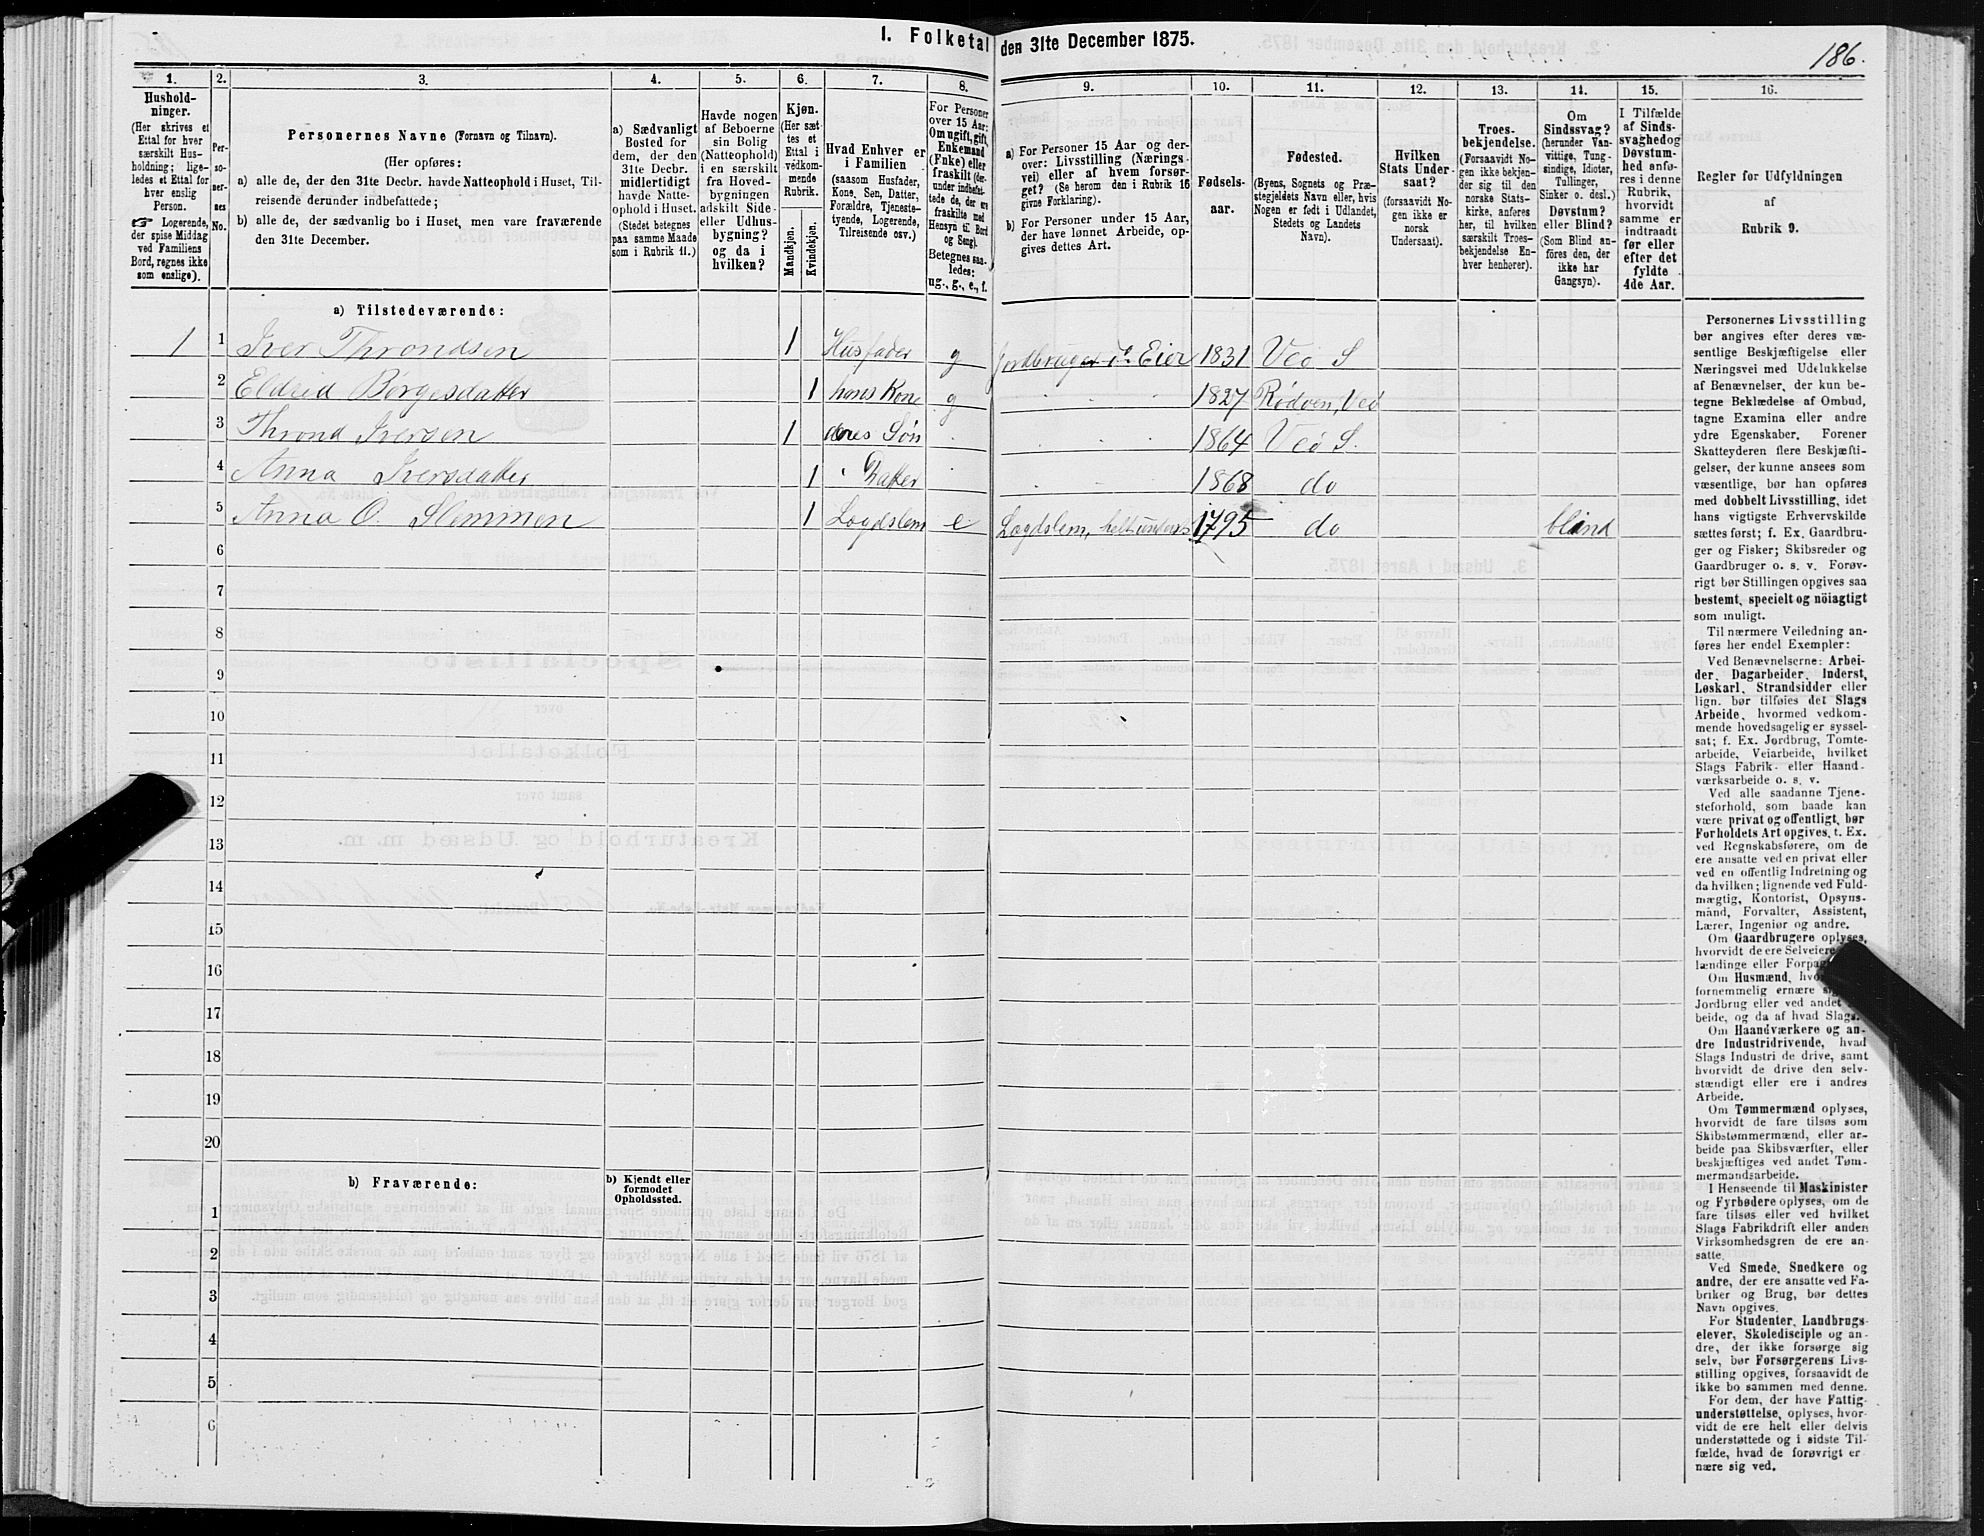 I. Folketal den 31te December 1875.
186.
1.
2.
3.
4.
5.
6.
7.
8.
9.
10.
11.
12.
13.
14.
15.
16.
Hushold-
ninger.
(Her skrives et
Ettal for hver
særskilt Hus-
holdning; lige-
ledes et Ettal for
hver enslig
Person.
☞ Logerende,
der spise Middag
ved Familiens
Bord, regnes ikke
som enslige).
Per-
so-
ner-
nes
No.
Personernes Navne (Fornavn og Tilnavn).
(Her opføres:
a) alle de, der den 31te Decbr. havde Natteophold i Huset, Til-
reisende derunder indbefattede;
b) alle de, der sædvanlig bo i Huset, men vare fraværende
den 31te December.
a) Sædvanligt
Bosted for
dem, der den
31te Decbr.
midlertidigt
havde Natte-
ophold i Huset.
(Stedet betegnes
paa samme Maade
som i Rubrik 11.)
Havde nogen
af Beboerne
sin Bolig
(Natteophold)
i en særskilt
fra Hoved-
bygningen
adskilt Side-
eller Udhus-
bygning?
og da i
hvilken?
Kjøn.
(Her sæt-
tes et
Ettal i
vedkom-
mende
Rubrik.
Mandkjøn.
Kvindekjøn.
Hvad Enhver er
i Familien
(saasom Husfader,
Kone, Søn, Datter,
Forældre, Tjeneste-
tyende, Logerende,
Tilreisende osv.)
For Personer
over 15 Aar:
Om ugift, gift,
Enkemand
(Enke) eller
fraskilt (der-
under indbefat-
tede de, der ere
fraskilte med
Hensyn til Bord
og Seng).
Betegnes saa-
ledes:
ug., g., e., f.
a) For Personer 15 Aar og der-
over: Livsstilling (Nærings-
vei) eller af hvem forsør-
get? (Se herom den i Rubrik 16
givne Forklaring).
b) For Personer under 15 Aar,
der have lønnet Arbeide, op-
gives dettes Art.
Fødsels-
aar.
Fødested.
(Byens, Sognets og Præ-
stegjeldets Navn eller, hvis
Nogen er født i Udlandet,
Stedets og Landets
Navn).
Hvilken
Stats Under-
saat?
(forsaavidt No-
gen ikke er
norsk
Undersaat).
Troes-
bekjendelse.
(Forsaavidt No-
gen ikke bekjen-
der sig til den
norske Stats-
kirke, anføres
her, til hvilken
særskilt Troes-
bekjendelse En-
hver henhører).
Om
Sindssvag?
(herunder Van-
vittige, Tung-
sindige, Idioter,
Tullinger,
Sinker o. desl.)
Døvstum?
eller Blind?
(Som Blind an-
føres den, der
ikke har
Gangsyn).
I Tilfælde
af Sinds-
svaghed og
Døvstum-
hed anfø-
res i denne
Rubrik,
hvorvidt
samme er
indtraadt
før eller
efter det
fyldte
4de Aar.
Regler for Udfyldningen
af
Rubrik 9.
a) Tilstedeværende:
1 1 Iver Throndsen 1 Husfader g Jordbruger do Eier 1831 Veø S
2 Eldrid Børgesdatter 1 hans Kone g 1827 Rødven, Veø
3 Thrond Iversen 1 deres Søn 1864 Veø S.
4 Anna Iversdatter 1 " Datter 1868 do
5 Anna O. Slemmen 1 Lægdslem e Lægdslem, 1795 do blind
6
7
8
9
10
11
12
13
14
15
16
17
18
19
20
b) Fraværende:
b) Kjendt eller
formodet
Opholdssted.
1
2
3
4
5
6
Personernes Livsstilling
bør angives efter deres væ-
sentlige Beskjæftigelse eller
Næringsvei med Udelukkelse
af Benævnelser, der kun be-
tegne Beklædelse af Ombud,
tagne Examina eller andre
ydre Egenskaber. Forener
Skatteyderen flere Beskjæfti-
gelser, der kunne ansees som
væsentlige, bør han opføres
med dobbelt Livsstilling, idet
hans vigtigste Erhvervskilde
sættes først; f. Ex. Gaardbru-
ger og Fisker; Skibsreder og
Gaardbruger o. s. v. Forøv-
rigt bør Stillingen opgives saa
bestemt, specielt og nöiagtigt
som muligt.
Til nærmere Veiledning an-
føres her endel Exempler:
Ved Benævnelserne: Arbei-
der, Dagarbeider, Inderst,
Løskarl, Strandsidder eller
lign. bør tilføies det Slags
Arbeide, hvormed vedkom-
mende hovedsagelig er syssel-
sat; f. Ex. Jordbrug, Tomte-
arbeide, Veiarbeide, hvilket
Slags Fabrik- eller Haand-
værksarbeide o. s. v.
Ved alle saadanne Tjene-
steforhold, som baade kan
være privat og offentligt, bør
Forholdets Art opgives, t. Ex.
ved Regnskabsførere, om de
ere ansatte ved en privat eller
ved en offentlig Indretning og
da hvilken; lignende ved Fuld-
mægtig, Kontorist, Opsyns-
mand, Forvalter, Assistent,
Lærer, Ingeniør og andre.
Om Gaardbrugere oplyses,
hvorvidt de ere Selveiere
lændinge eller
Om Husmænd,
fornemmelig ernære
Jordbrug eller ved andet
beide, og da af hvad Slags.
Om Haandværkere og an-
dre Industridrivende, hvad
Slags Industri de drive, samt
hvorvidt de drive den selv-
stændigt eller ere i andres
Arbeide.
Om Tømmermænd oplyses,
hvorvidt de fare tilsøs som
Skibstømmermænd, eller ar-
beide paa Skibsværfter, eller
beskjæftiges ved andet Tøm-
mermandsarbeide.
I Henseende til Maskinister
og Fyrbødere oplyses, om de
fare tilsøs eller ved hvilket
Slags Fabrikdrift eller anden
Virksomhedsgren de ere an-
satte.
Ved Smede, Snedkere og
andre, der ere ansatte ved Fa-
briker og Brug, bør dettes
Navn opgives.
For Studenter, Landbrugs-
elever, Skoledisciple og an-
dre, der ikke forsørge sig
selv, bør Forsørgerens Livs-
stilling opgives, forsaavidt de
ikke bo sammen med denne.
For dem, der have Fattig-
understøttelse, oplyses, hvor-
vidt de ere helt eller delvis
understøttede og i sidste Til-
fælde, hvad de forøvrigt er-
nære sig ved.